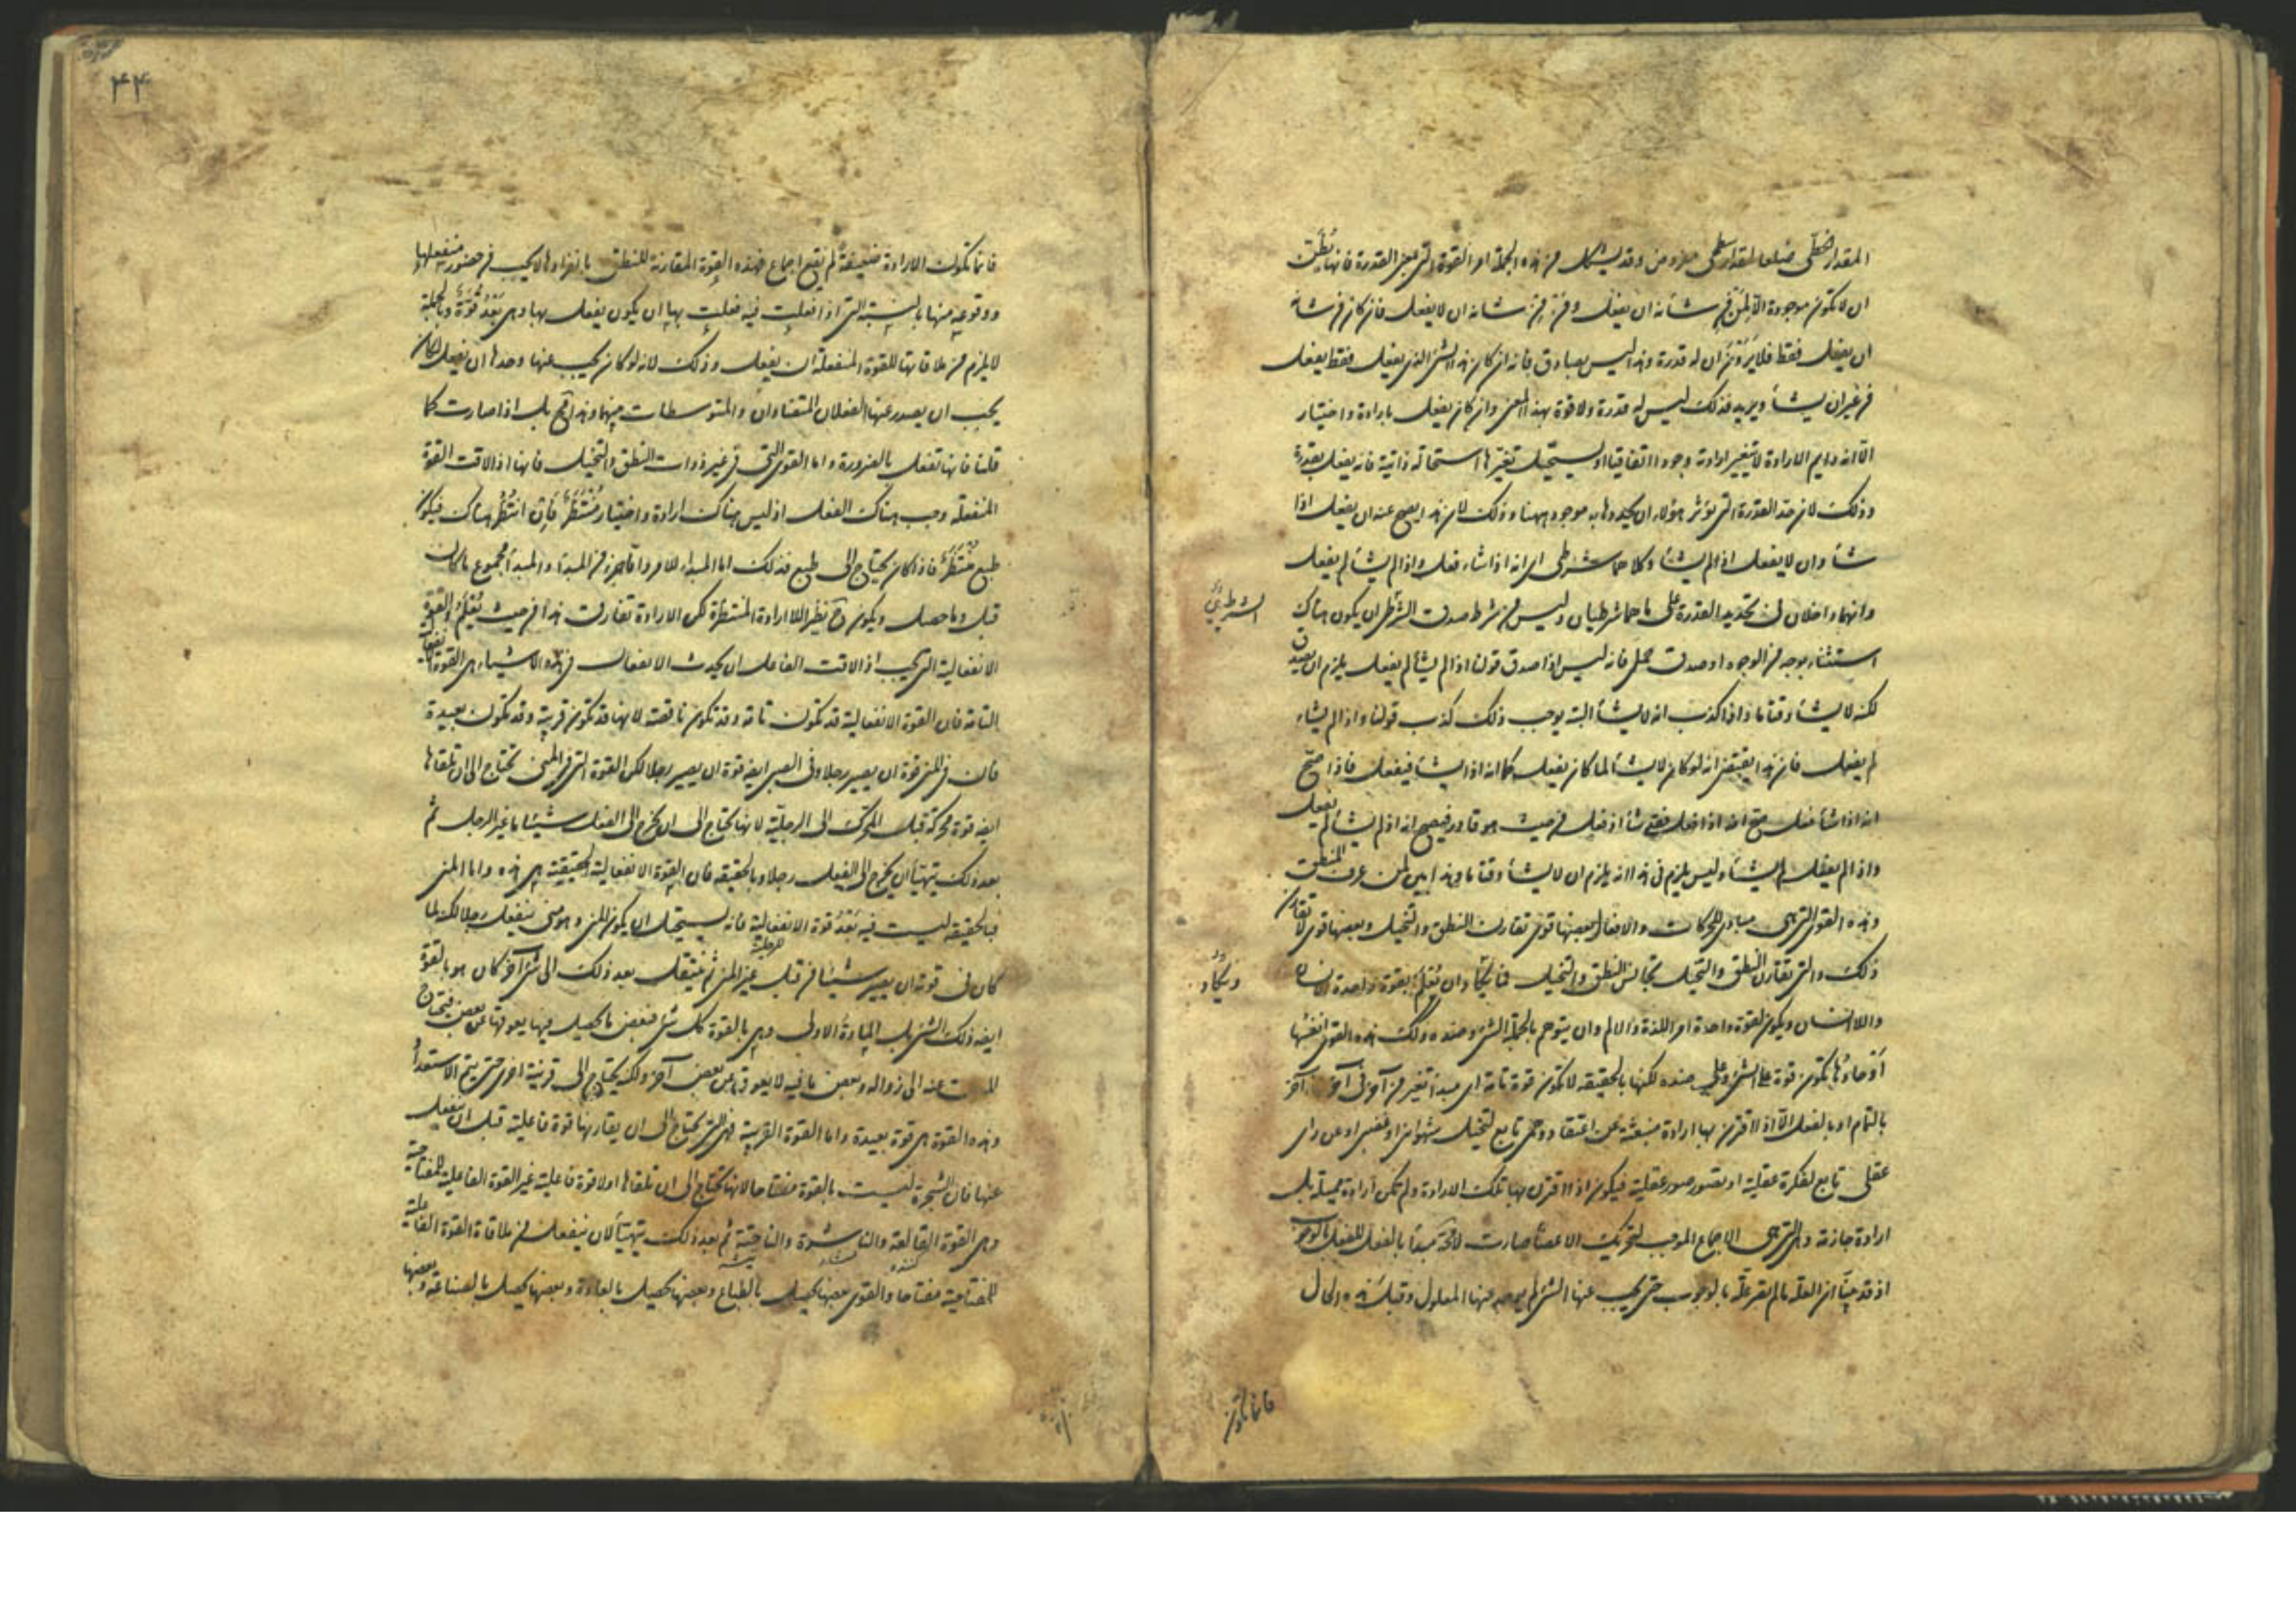 المقدار الخطي ضلعا لمقدار سطحي مفروض وقد يشكل من هذه الجملة امر القوة التي بمعنى القدرة فانها يظن
ان لا تكون موجودة الا لمن من شأنه ان يفعل ومن شانه ان لا يفعل فان كان من شانه
ان يفعل فقط فلا يرون ان له قدرة وهذا ليس بصادق فانه ان كان هذا الشئ الذي يفعل فقط يفعل
من غير ان يشأ ويريد فذلك ليس له قدرة ولا قوة بهذا المعنى وان كان يفعل بارادة واختيار
الا انه دايم الارادة لا يتغير ارادته وجودا اتفاقيا او يستحيل تغيرها استحالة ذاتية فانه يفعل بقدرة
وذلك لان حد القدرة التي يؤثر هؤلاء ان يحدوها به موجود ههنا وذلك لان هذا يصح عنه ان يفعل اذا
شأ وان لا يفعل اذا لم يشأ وكلا هما شرطي اي انه اذا شاء فعل واذا لم يشأ لم يفعل
وانهما داخلان في تحديد القدرة على ما هما شرطيان وليس من شرط صدق الشرطي ان يكون هناك
الشرطي
استثناء بوجه من الوجوه او صدق حملي فانه ليس اذا صدق قولنا اذا لم يشأ لم يفعل يلزم ان يصدق
لكنه لا يشأ وقتا ما واذا كذب انه لا يشأ البتة يوجب ذلك كذب قولنا واذا لم يشاء
لم يفعل فان هذا يقتضي انه لو كان لا يشأ لما كان يفعل كما انه اذا يشأ فيفعل فاذا صح
انه اذا شأ فعل صح انه اذا فعل فقد شأ اذ فعل من حيث هو قادر فيصح انه اذا لم يشأ لم يفعل
واذا لم يفعل لم يشأ وليس يلزم في هذا انه يلزم ان لا يشأ وقتا ما وهذا بين لمن عرف المنطق
وهذه القوى التي هي مبادى للحركات والافعال بعضها قوى تقارن النطق والتخيل وبعضها قوى لا تقارن
ذلك والتي تقارن النطق والتخيل تجانس النطق والتخيل فانه يكاد ان يعلم بقوة واحدة الانسان
ويكاد
واللاانسان ويكون لقوة واحدة امر اللذة والالم وان يتوهم بالجملة الشئ وضده وكذلك هذه القوى انفسها
او حادها تكون قوة على الشئ وعلى ضده لكنها بالحقيقة لا تكون قوة تامة اي مبدا تغير من آخر في آخر بانه آخر
بالتمام او بالفعل الا اذا اقترن بها ارادة منبعثة عن اعتقاد وهمي تابع لتخيل شهواني او غضبي او عن راى
عقلى تابع لفكرة عقلية او تصور صورة عقلية فيكون اذا اقترن بها تلك الارادة ولم تكن ارادة مميلة بل
ارادة جازمة وهي التي هي الاجماع الموجب لتحريك الاعضا صارت لا محة مبدا بالفعل للفعل بالوجوب
اذ قد بينا ان العلة ما لم يصر علة بالوجوب حتى يجب عنها الشئ لم يوجد عنها المعلول وقبل هذه الحال
فانما تكون
۴۴
فانما تكون الارادة ضعيفة لم يقع اجماع فهذه القوة المقارنة للنطق بانفرادها لا يجب من حضور منفعلها
ووقوعه منها بالنسبة التي اذا فعلت فيه فعلت بها ان يكون يفعل بها وهي بعد قوة وبالجملة
لا يلزم من ملاقاتها للقوة المنفعلة ان يفعل وذلك لانه لو كان يجب عنها وحدها ان يفعل لكان
يجب ان يصدر عنها الفعلان المتضادان والمتوسطات بينهما وهذا مح بل اذا صارت كما
قلنا فانها تفعل بالضرورة واما القوى التي في غير ذوات النطق والتخيل فانها اذا لاقت القوة
المنفعلة وجب هناك الفعل اذ ليس هناك ارادة واختيار منتظر فان انتظر هناك فيكون
طبع منتظر فاذا كان يحتاج الى طبع فذلك اما المبدا للامر واما جزء من المبدا والمبدا مجموع ما كان
قبل وما حصل ويكون ح نظير اللارادة المنتظرة لكن الارادة تفارق هذا من حيث يعلم والقوة
الانفعالية التي يجب اذا لاقت الفاعل ان يحدث الانفعال في هذه الاشياء هي القوة الانفعالية
التامة فان القوة الانفعالية قد تكون تامة وقد تكون ناقصة لانها قد تكون قريبة وقد تكون بعيدة
فان في المنى قوة ان يصير رجلا وفى الصبى ايضا قوة ان يصير رجلا لكن القوة التي في المنى تحتاج الى ان تلقاها
ايضا قوة محركة قبل المحرك الى الرجلية لانها تحتاج الى ان يخرج الى الفعل شيئا ما غير الرجل ثم
بعد ذلك يتهيأ ان يخرج الى الفعل رجلا وبالحقيقة فان القوة الانفعالية الحقيقية هي هذه واما المنى
فبالحقيقة ليست فيه بعد قوة الانفعالية فانه يستحيل ان يكون المنى وهو منى ينفعل رجلا لكنه لما
للرجلية
كان في قوته ان يصير شيئا من قبل غير المنى ثم ينتقل بعد ذلك الى شئ آخر كان هو بالقوة
ايضا ذلك الشئ بل المادة الاولى وهي بالقوة كل شئ فبعض ما يحصل فيها يعوقها عن بعض فيحتاج
عنه الى زواله وبعض ما فيه لا يعوق عن بعض آخر ولكنه يحتاج الى قرينة اخرى حتى يتم الاستعداد
وهذه القوة هي قوة بعيدة واما القوة القريبة فهي التي لا تحتاج الى ان يقارنها قوة فاعلية قبل ان ينفعل
عنها فان الشجرة ليست بالقوة مفتاحا لانها تحتاج الى ان تلقاها اولا قوة فاعلية غير القوة الفاعلية للمفتاحية
وهي القوة القالعة والناشرة والناحتة ثم بعد ذلك يتهيأ لان ينفعل من ملاقاة القوة الفاعلية
للمفتاحية مفتاحا والقوى بعضها يحصل بالطباع وبعضها يحصل بالعادة وبعضها يحصل بالصناعة وبعضها